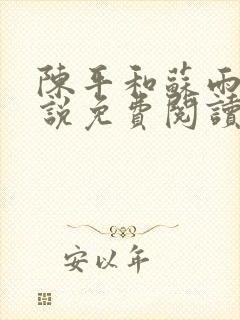 陳平和蘇雨
說免費閱讀
安以年